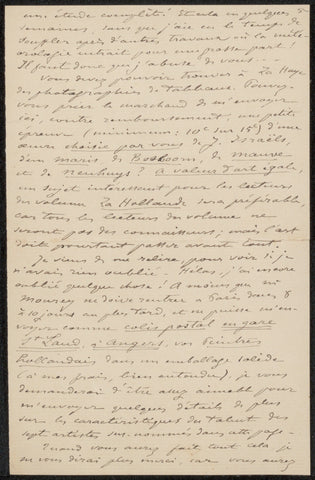 une étende complète! Et cela en quelques
semaines, sans que j'aie eu le temps de
d'après d'autres travaux où la
entrait pour une part!
Il faut donc que j'abuse de vous...
Vous devez pouvoir trouver à La Haye
des photographies de tableaux. Pouvez-
vous prier le marchand de m'envoyer
ici, contre remboursement, une petite
épreuve (minimum: 10c sur 15c) d'une
œuvre choisie par vous de J. Israëls,
d'un Maris, de Bosboom, de Mauve
et de Neuhuys? À valeur d'art égale,
un sujet intéressant pour les lecteurs
du volume La Hollande sera préférable,
car tous les lecteurs du volume ne
seront pas des connaisseurs; mais l'art
doit pourtant passer avant tout.
Je viens de me relire, pour voir si je
n'avais rien oublié. Hélas, j'ai encore
oublié quelque chose! À moins que
ne doive rentrer à Paris dans 8
à 10 jours au plus tard, et ne puisse m'en-
voyer comme colis postal en gare
St Laud, à Angers, vos Peintres
Hollandais dans un emballage solide
(à mes frais, bien entendu), je vous
demanderai d'être assez aimable pour
m'envoyer quelques détails de plus
sur les caractéristiques du talent des
sept artistes sus-nommés dans
Quand vous aurez fait tout cela je
ne vous dirai plus merci, car vous aurez